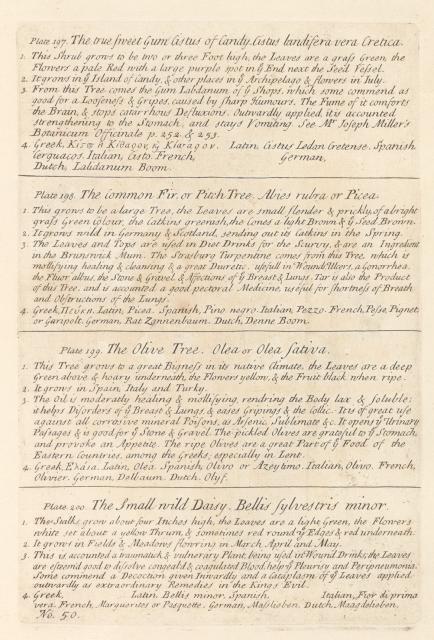 Plate 197. The true sweet Gum Cistus of Candy. Cistus landifera vera Cretica.
1. This Shrub grows to be two or three Foot high, the Leaves are a grass Green, the
Flowers a pale Red with a large purple spot in ye End next the Seed Vessel.
2. It grows in ye Island of Candy, & other places in ye Archipelago & flowers in July.
3. From this Tree comes the Gum Labdanum of ye Shops, which some commend as
good for a Looseness & Gripes, caused by sharp Humours. The Fume of it comforts
the Brain, & stops catarrhous Defluxions. Outwardly applied, it is accounted
strengthening to the Stomach, and stays Vomiting. See Mr. Joseph Miller's
Botanicum Officinale p. 252. & 253.
4. Greek, Latin, Cistus Ledon Cretense. Spanish
Cerguaços. Italian, Cisto. French, German,
Dutch, Lalidanum Boom.
Plate 198. The Common Fir, or Pitch Tree. Abies rubra or Picea.
1. This grows to be a large Tree, the Leaves are small slender & prickly, of a bright
grass Green Colour, the Catkins greenish, the Cones a light Brown & ye Seed Brown.
2. It grows wild in Germany & Scotland, sending out its Catkins in the Spring.
3. The Leaves and Tops are used in Diet Drinks for the Scurvy, & are an Ingredient
in the Brunswick Mum. The Strasburg Turpentine comes from this Tree, which is
mollifying healing & cleansing, & a great Diuretic, usefull in Wounds, Ulcers, a Gonorrhea,
the Fluor albus, the Stone & Gravel, & Affections of ye Breast & Lungs. Tar is also the Product
of this Tree, and is accounted a good pectoral Medicine, useful for shortness of Breath
and Obstructions of the Lungs.
4. Greek, Πευκη. Latin, Picea. Spanish, Pino negro. Italian, Pezzo. French, Pesse, Pignet
or Garipot. German, Rot Tannenbaum. Dutch, Denne Boom.
Plate 199. The Olive Tree. Olea or Olea sativa.
1. This Tree grows to a great Bigness in its native Climate, the Leaves are a deep
Green above & hoary underneath, the Flowers yellow, & the Fruit black when ripe.
2. It grows in Spain, Italy and Turky.
3. The Oil is moderatly healing & mollifying, rendring the Body lax & soluble;
it helps Disorders of ye Breast & Lungs, & eases Gripings & the Collic. It is of great use
against all corrosive mineral Poisons, as Arsenic, Sublimate &c. It opens ye Urinary
Passages & is good for ye Stone & Gravel. The pickled Olives are grateful to ye Stomach,
and provoke an Appetite. The ripe Olives are a great Part of ye Food of the
Eastern Countries, among the Greeks, especially in Lent.
4. Greek, Ελαια. Latin, Olea. Spanish, Olivo or Azeytuno. Italian, Olivo. French,
Olivier. German, Oelbaum. Dutch, Olyf.
Plate 200. The Small wild Daisy. Bellis sylvestris minor.
1. The Stalks grow about four Inches high, the Leaves are a light Green, the Flowers
white set about a yellow Thrum, & sometimes red round ye Edges & red underneath.
2. It grows in Fields & Meadows flowring in March, April and May.
3. This is accounted a traumatick & vulnerary Plant, being used in Wound Drinks; the Leaves
are esteem'd good to disolve congeal'd & coagulated Blood, help ye Pleurisy and Peripneumonia.
Some commend a Decoction given Inwardly and a Cataplasm of ye Leaves applied
outwardly as extraordinary Remedies in the Kings Evil.
4. Greek, Latin, Bellis minor. Spanish, Italian, Fior di prima
vera. French, Marguerites or Pasquette. German, Masslieben. Dutch, Maagdelieben.
No. 50.